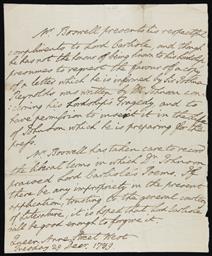 Mr. Boswell presents his respectful
compliments to Lord Carlisle, and though
he has not the honour of being known to his Lordship,
presumes to request the favour of a copy
of a letter which he is informed by Sir Joshua
Reynolds was written by Dr. Johnson con-
cerning his Lordship's Tragedy and to
have permission to insert it in the Life
of Johnson which he is preparing for the
press.
Mr. Boswell has taken care to record
the liberal terms in which Dr. Johnson
praised Lord Carlisle's Poems. If
there be any impropriety in the present
application, trusting to the general candour
of literature, it is hoped that Lord Carlisle
will be good enough to forgive it.
Queen Anne Street West
Tuesday 29 Dec. 1789